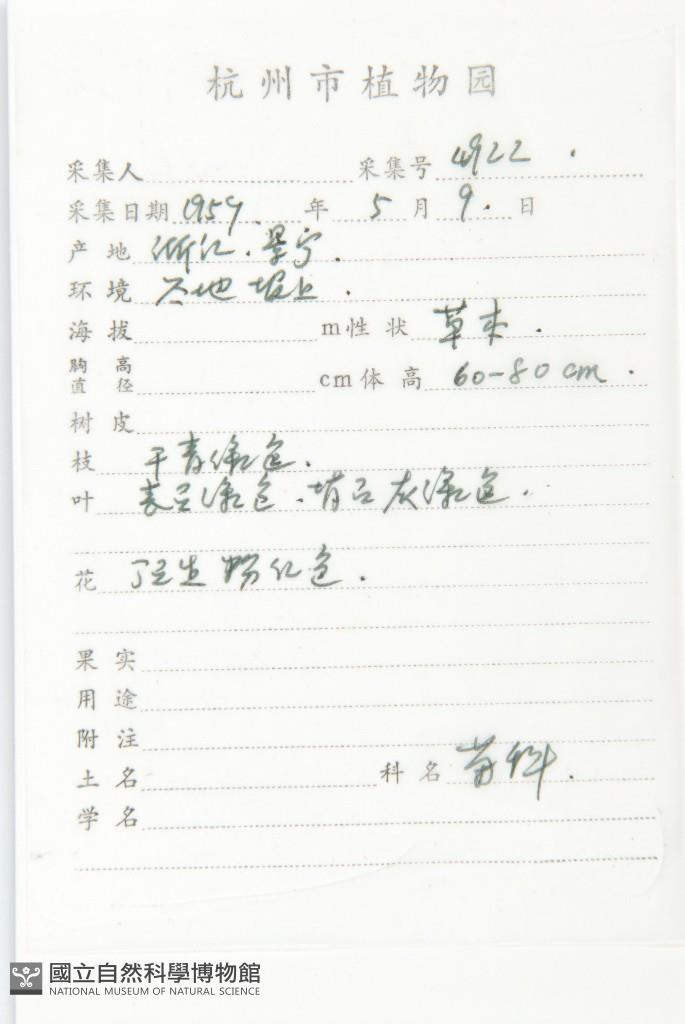 杭州市植物园
采集人 采集号 4922.
采集日期 1959. 年 5 月 9. 日
产地 浙江.景宁.
环境 地 坡上.
海拔 m性状 草本.
胸高直径 cm体高 60-80cm.
树皮
枝 干青绿色.
叶 表呈绿色.背呈灰绿色.
花 顶生 粉红色.
果实
用途
附注
土名 科名 菊科.
学名
國立自然科學博物館
NATIONAL MUSEUM OF NATURAL SCIENCE